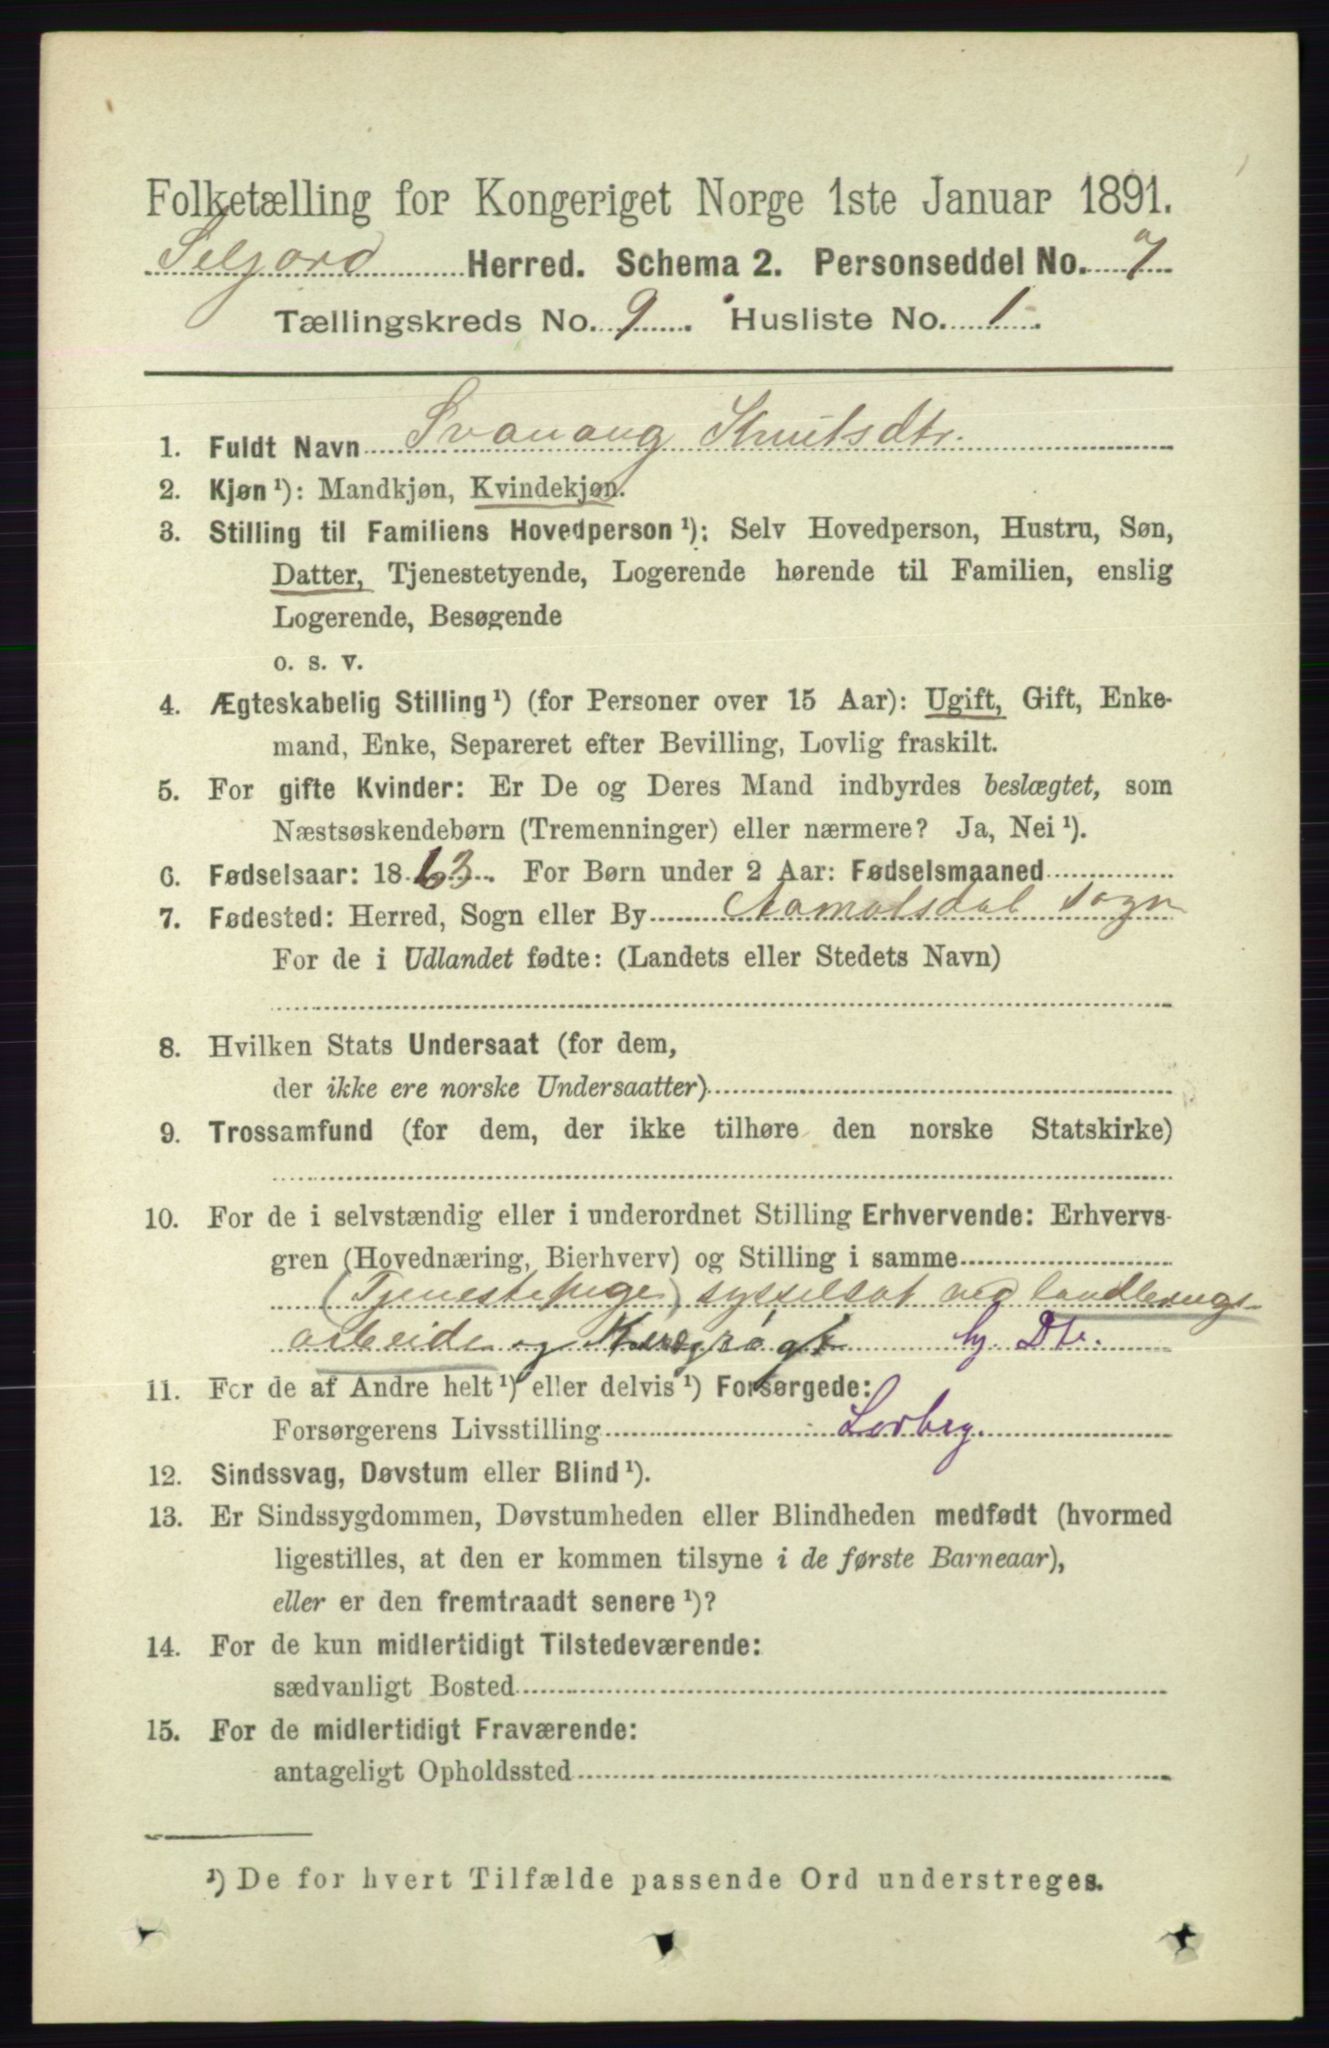 Folketælling for Kongeriget Norge 1ste Januar 1891.
Seljord Herred. Schema 2. Personseddel No. 7
Tællingskreds No. 9. Husliste No. 1.
1. Fuldt Navn Svanaug Knutsdtr.
2. Kjøn ¹): Mandkjøn, Kvindekjøn.
3. Stilling til Familiens Hovedperson ¹): Selv Hovedperson, Hustru, Søn,
Datter, Tjenestetyende, Logerende hørende til Familien, enslig
Logerende, Besøgende
o. s. v.
4. Ægteskabelig Stilling ¹) (for Personer over 15 Aar): Ugift, Gift, Enke-
mand, Enke, Separeret efter Bevilling, Lovlig fraskilt.
5. For gifte Kvinder: Er De og Deres Mand indbyrdes beslægtet, som
Næstsøskendebørn (Tremenninger) eller nærmere? Ja, Nei ¹).
6. Fødselsaar: 1863. For Børn under 2 Aar: Fødselsmaaned
7. Fødested: Herred, Sogn eller By Aamotsdal Sogn
For de i Udlandet fødte: (Landets eller Stedets Navn)
8. Hvilken Stats Undersaat (for dem,
der ikke ere norske Undersaatter)
9. Trossamfund (for dem, der ikke tilhøre den norske Statskirke)
10. For de i selvstændig eller i underordnet Stilling Erhvervende: Erhvervs-
gren (Hovednæring, Bierhverv) og Stilling i samme
(Tjenestepige) sysselsat ved landbrugs-
arbeide og Kreaturrøgt hj. Dtr.
11. For de af Andre helt ¹) eller delvis ¹) Forsørgede:
Forsørgerens Livsstilling
12. Sindssvag, Døvstum eller Blind ¹).
13. Er Sindssygdommen, Døvstumheden eller Blindheden medfødt (hvormed
ligestilles, at den er kommen tilsyne i de første Barneaar),
eller er den fremtraadt senere ¹)?
14. For de kun midlertidigt Tilstedeværende:
sædvanligt Bosted
15. For de midlertidigt Fraværende:
antageligt Opholdssted
¹) De for hvert Tilfælde passende Ord understreges.